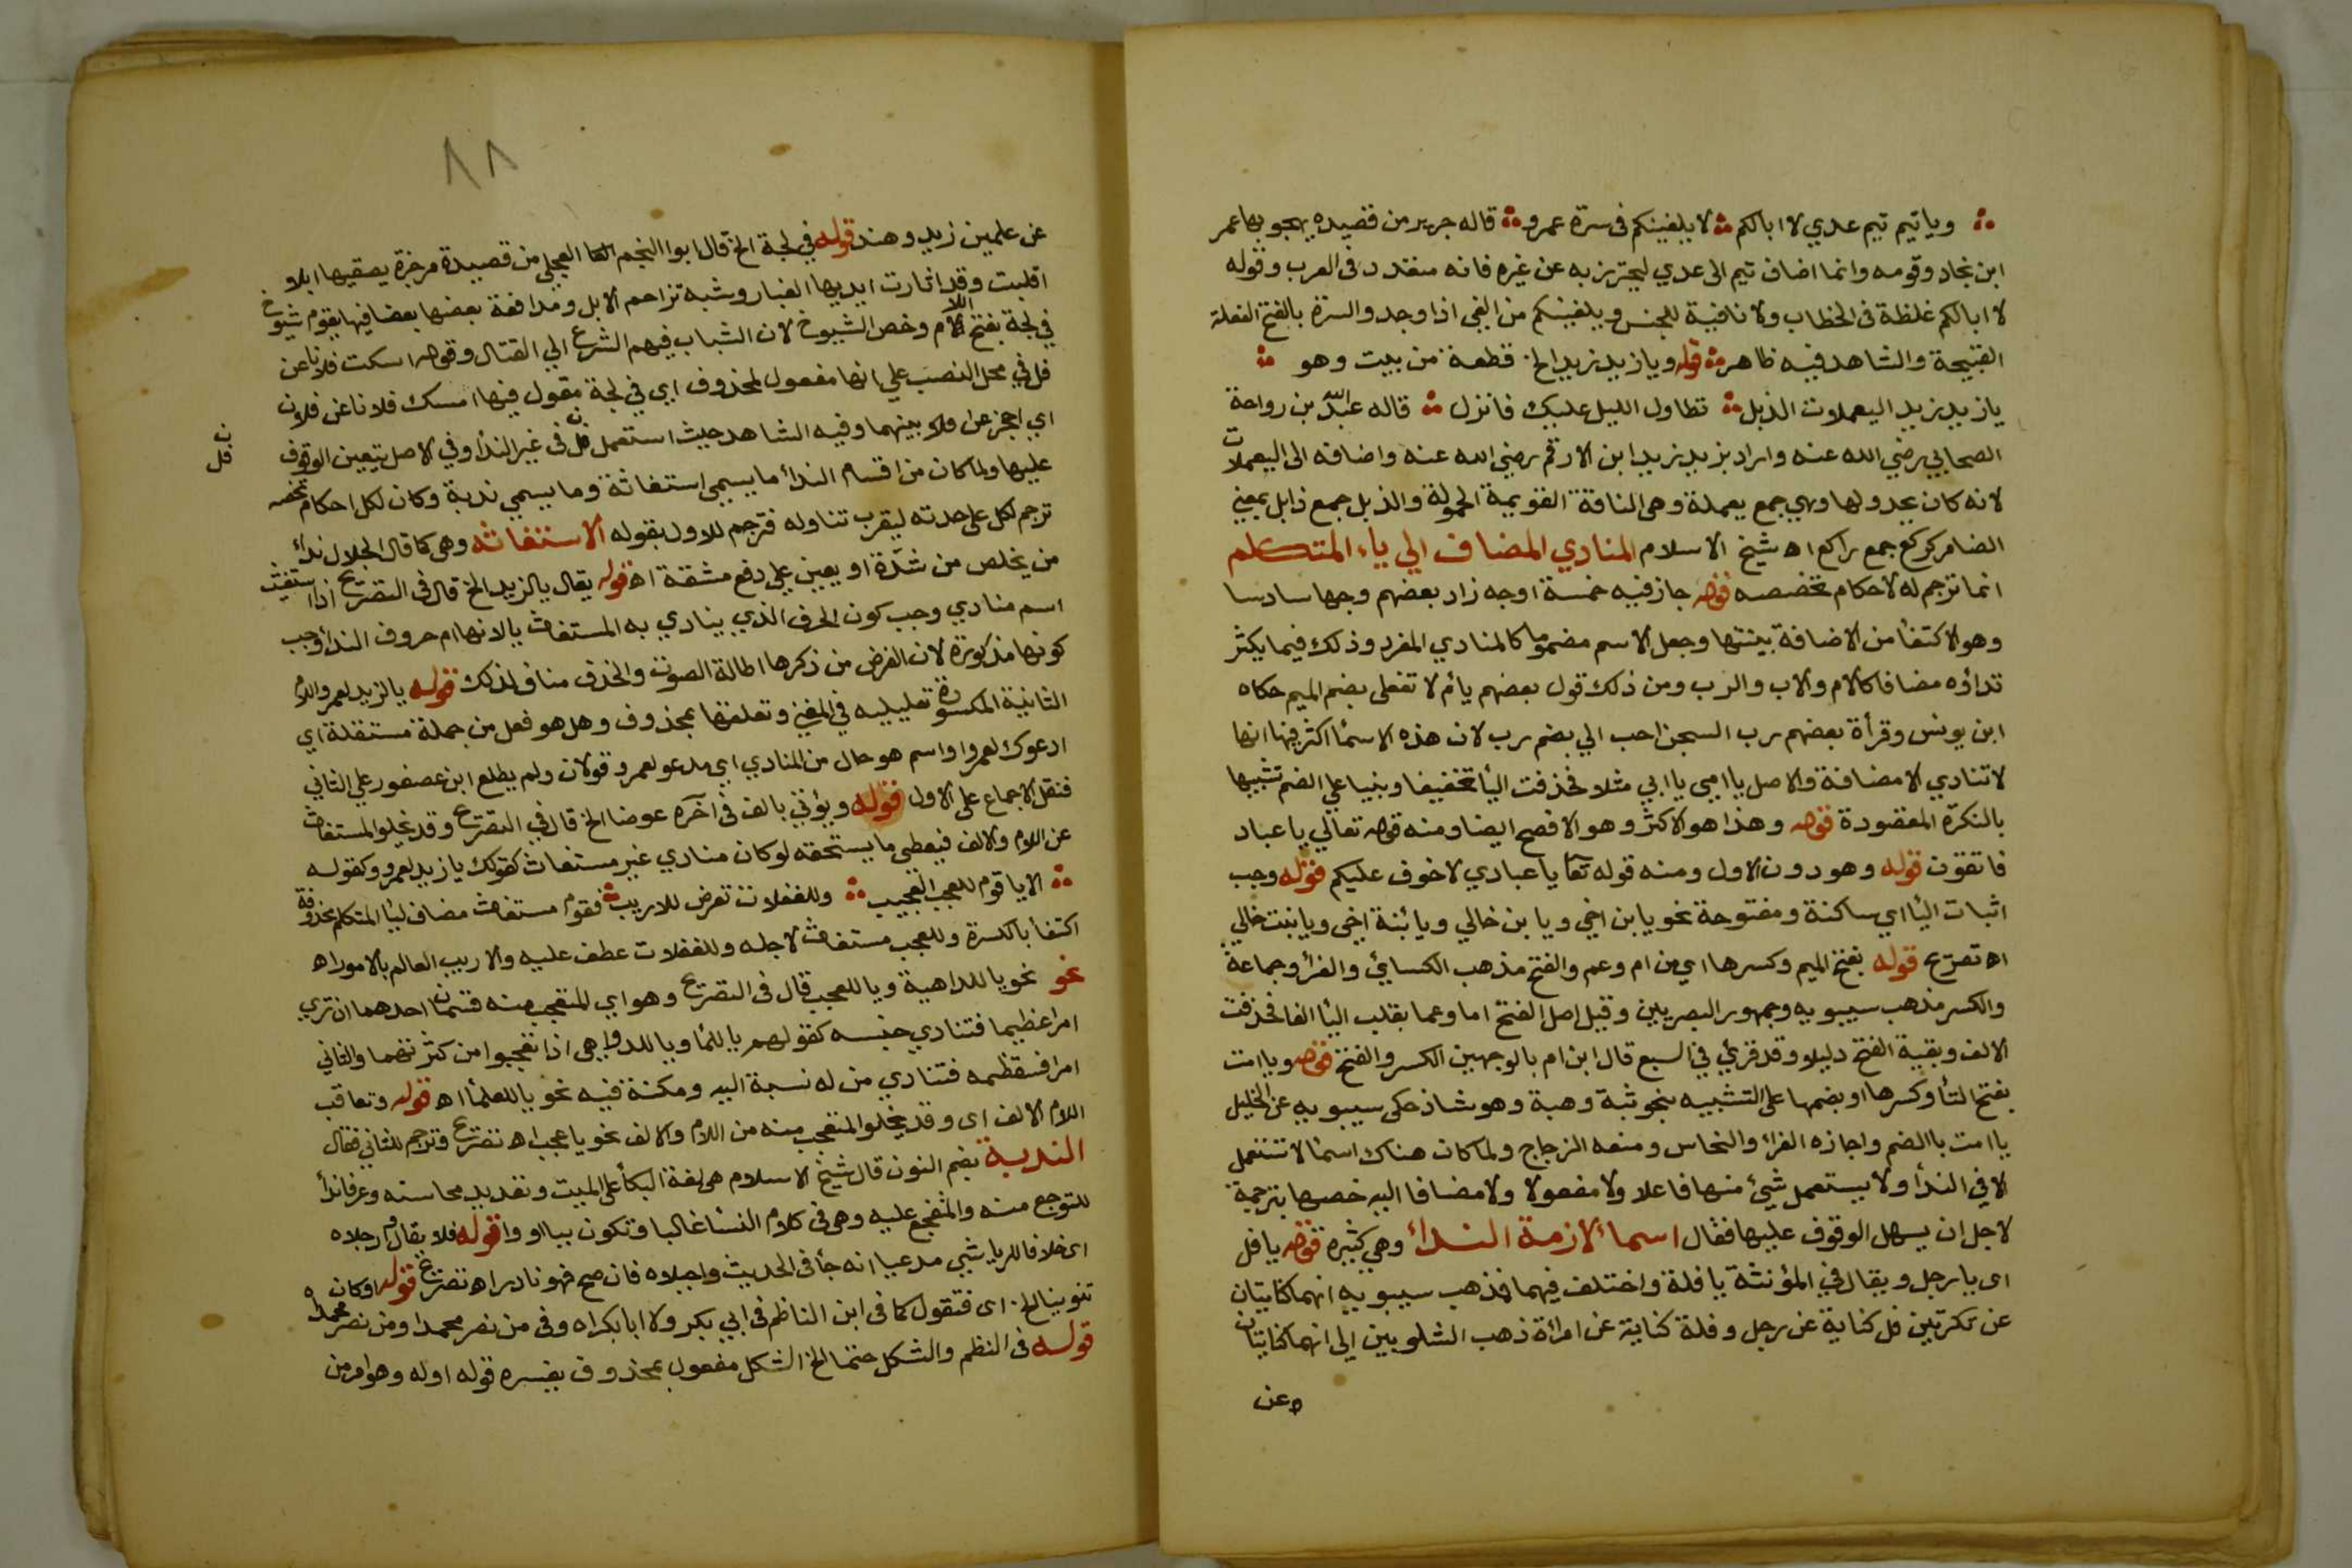 ويا تيم تيم عدي لا ابالكم لا يلفينكم في سرة عمرو قاله جرير من قصيده يهجو بها عمر
ابن نجاد وقومه وانما اضاف تيم الى عدي ليحترز به عن غيره فانه متعدد في العرب وقوله
لا ابالكم غلظة في الخطاب ولا نافية للجنس ويلفينكم من الفى اذا وجد والسرة بالفتح الفعلة
القبيحة والشاهد فيه ظاهر قوله ويا زيد زيد الخ قطعة من بيت وهو
يا زيد زيد اليعملات الذبل تطاول الليل عليك فانزل قاله عبد الله بن رواحة
الصحابي رضي الله عنه واراد بزيد زيد ابن الارقم رضي الله عنه واضافه الى اليعملات
لانه كان يحدو لها وهي جمع يعملة وهي الناقة القويمة الحمولة والذبل جمع ذابل بمعني
الضامر كركع جمع راكع اه شيخ الاسلام المنادي المضاف الي ياء المتكلم
انما ترجم له لاحكام تخصصه قوله جاز فيه خمسة اوجه زاد بعضهم وجها سادسا
وهو الاكتفأ من الاضافة بنيتها وجعل الاسم مضموما كالمنادي المفرد وذلك فيما يكثر
ندأوه مضافا كالام والاب والرب ومن ذلك قول بعضهم يا أم لا تفعلي بضم الميم حكاه
ابن يونس وقرأة بعضهم رب السجن احب الي بضم رب لان هذه الاسمأ اكثر فيها انها
لا تنادي الا مضافة والاصل يا امي يا ابي مثلا فحذفت اليأ تخفيفا وبنيا علي الضم تشبيها
بالنكرة المقصودة قوله وهذا هو الاكثر وهو الافصح ايضا ومنه قوله تعالي يا عباد
فاتقون قوله وهو دون الاول ومنه قوله تعا يا عبادي لا خوف عليكم قوله وجب
اثبات اليأ اي ساكنة ومفتوحة نحو يا بن اخي ويا بن خالي ويا بنة اخي ويا بنت خالي
اه تصريح قوله بفتح الميم وكسرها اي من ام وعم والفتح مذهب الكسائي والفرأ وجماعة
والكسر مذهب سيبويه وجمهور البصريين وقيل اصل الفتح اما وعما بقلب اليأ الفا فحذفت
الالف وبقية الفتح دليلا وقد قرئ في السبع قال ابن ام بالوجهين الكسر والفتح قوله ويا امت
بفتح التأ وكسرها او بضمها على التشبيه بنحو ثبة وهبة وهو شاذ حكى سيبويه عن الخليل
يا امت بالضم واجازه الفرأ والنحاس ومنعه الزجاج ولما كان هناك اسمأ لا تستعمل
الا في الندأ ولا يستعمل شيئ منها فاعلا ولا مفعولا ولا مضافا اليه خصها بترجمة
لاجل ان يسهل الوقوف عليها فقال اسمأ لازمة الندأ وهي كثيره قوله يا فل
اى يا رجل ويقال في المؤنثة يا فلة واختلف فيهما فذهب سيبويه انهما كنايتان
عن نكرتين فل كناية عن رجل وفلة كناية عن امرأة ذهب الشلوبين الى انهما كنايتان
عن
٨٨
عن علمين زيد وهند قوله في لجة الخ قال ابوا النجم العجلي من قصيدة مرجزة يصف بها ابلا
اقبلت وقد اثارت ايديها الغبار وشبه تزاحم الابل ومدافعة بعضها بعضا فيها بقوم شيوخ
في لجة بفتح اللام وخص الشيوخ لان الشباب فيهم الشرع الي القتال وقوله اسكت فلانا عن
فل في محل النصب علي انها مفعول لمحذوف اي في لجة مقول فيها امسك فلانا عن فلان
اي احجز عن فلا بينهما وفيه الشاهد حيث استعمل فل في غير الندأ وفي الاصل يتعين الوقوف
فل
عليها ولما كان من اقسام الندأ ما يسمى استغاثة وما يسمي ندبة وكان لكل احكام تخصه
ترجم لكل على حدته ليقرب تناوله فترجم للاول بقوله الاستغاثه وهي كما قال الجلال ندأ
من يخلص من شدة او يعين علي دفع مشقة اه قوله يقال يا لزيد الخ قال في التصريح اذا استغيث
اسم منادي وجب كون الحرف الذي ينادي به المستغاث يا لانها ام حروف الندأ وجب
كونها مذكورة لان الغرض من ذكرها اطالة الصوت والحذف مناف لذلك قوله يا لزيد لعمرو اللام
الثانية المكسورة تعليليه في المغني وتعلقها بمحذوف وهل هو فعل من جملة مستقلة اي
ادعوك لعمروا واسم هو حال من المنادي اي مدعو لعمرو قولان ولم يطلع ابن عصفور علي الثاني
فنقل الاجماع على الاول قوله ويؤتي بالف في اخره عوضا الخ قال في التصريح وقد يخلوا المستغاث
عن اللام والالف فيعطى ما يستحقه لو كان منادي غير مستغاث كقولك يا زيد لعمرو وكقوله
الا يا قوم للعجب العجيب وللغفلات تعرض للاريب فقوم مستغاث مضاف ليأ المتكلم محذوفة
اكتفأ بالكسرة وللعجب مستغاث لاجله وللغفلات عطف عليه والاريب العالم بالامور اه
نحو نحو يا للداهية ويا للعجب قال في التصريح وهو اي المتعجب منه قسمان احدهما ان تري
امرا عظيما فتنادي جنسه كقولهم يا للمأ ويا للدواهي اذا تعجبوا من كثرتهما والثاني
امرا فستعظمه فتنادي من له نسبة اليه ومكنة فيه نحو يا للعلمأ اه قوله وتعاقب
اللام الالف اى وقد يخلوا المتعجب منه من اللام والالف نحو يا عجب اه تصريح وترجم للثاني فقال
الندبة بضم النون قال شيخ الاسلام هي لغة البكأ على الميت وتعديد محاسنه وعرفا ندأ
للتوجع منه والمتفجع عليه وهي في كلام النسأ غالبا وتكون بيا او وا قوله فلا يقال وا رجلاه
اى خلافا للرياشي مدعيا انه جأ في الحديث واجبلاه فان صح فهو نادر اه تصريح قوله او كان
تنوينا الخ اى فتقول كما في ابن الناظم في ابي بكر ولا ابا بكراه وفي من نصر محمدا ومن نصر محمداه
قوله في النظم والشكل حتما الخ الشكل مفعول بمحذوف يفسره قوله اوله وهو امر من